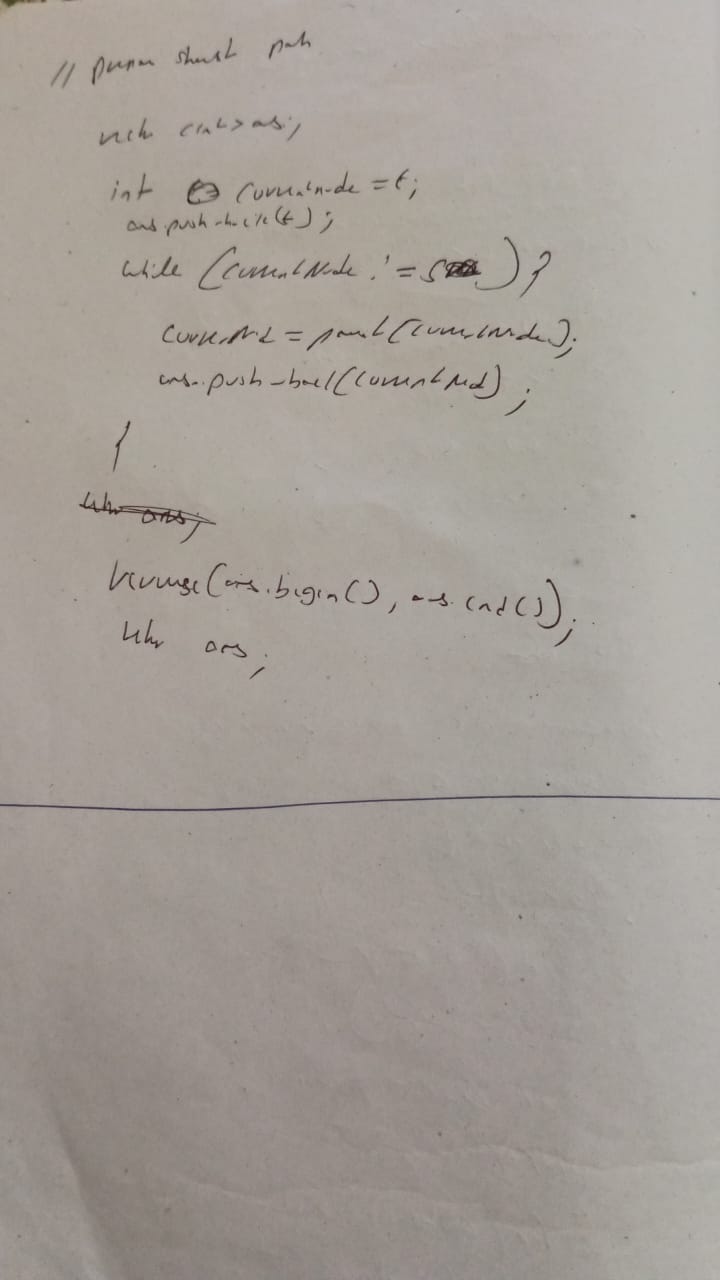 // shortest path
vector <int> ans;
int currentnode = t;
ans.push-back(t);
while (currentNode != s) {
currentNode = parent[currentNode];
ans.push-back(currentNode);
}
reverse(ans.begin(), ans.end());
return ans;